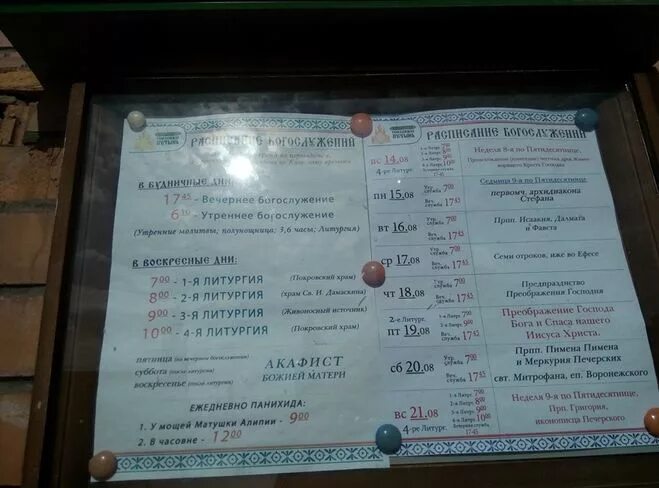 РАСПИСАНИЕ БОГОСЛУЖЕНИЙ
В БУДНИЧНЫЕ ДНИ:
17 45 - Вечернее богослужение
6 - Утреннее богослужение
(Утренние молитвы; полунощница; 3,6 часы; Литургия)
В ВОСКРЕСНЫЕ ДНИ:
7 00 - 1-Я ЛИТУРГИЯ (Покровский храм)
8 00 - 2-Я ЛИТУРГИЯ (храм Св. И. Дамаскина)
9 00 - 3-Я ЛИТУРГИЯ (Живоносный источник)
10 00 - 4-Я ЛИТУРГИЯ (Покровский храм)
пятница (на вечернем богослужении)
суббота (после литургии)
воскресенье (после литургии)
АКАФИСТ
БОЖИЕЙ МАТЕРИ
ЕЖЕДНЕВНО ПАНИХИДА:
1. У мощей Матушки Алипии - 9 00
2. В часовне - 12 00
РАСПИСАНИЕ БОГОСЛУЖЕНИЙ
вс 14.08
4-ре Литург.
Неделя 8-я по Пятидесятнице.
пн 15.08
Утр. служба 7 00
Веч. служба 17 45
Седмица 9-я по Пятидесятнице
первомч. архидиакона
Стефана
вт 16.08
Утр. служба 7 00
Веч. служба 17 45
Прпп. Исаакия, Далмата
и Фавста
ср 17.08
Утр. служба 7 00
Веч. служба 17 45
Семи отроков, иже во Ефесе
чт 18.08
Утр. служба 7 00
Веч. служба 17 45
Предпразднство
Преображения Господня
2-е Литург.
пт 19.08
1-я Литург 7 00
2-я Литург 9 00
Веч. служба 17 45
Преображение Господа
Бога и Спаса нашего
Иисуса Христа.
сб 20.08
Утр. служба 7 00
Веч. служба 17 45
Прпп. Пимена Пимена
и Меркурия Печерских
свт. Митрофана, еп. Воронежского
вс 21.08
4-ре Литург.
1-я Литург 7 00
2-я Литург 8 00
3-я Литург 9 00
4-я Литург 10 00
Вечерняя служба
17 45
Неделя 9-я по Пятидесятнице,
Прп. Григория,
иконописца Печерского